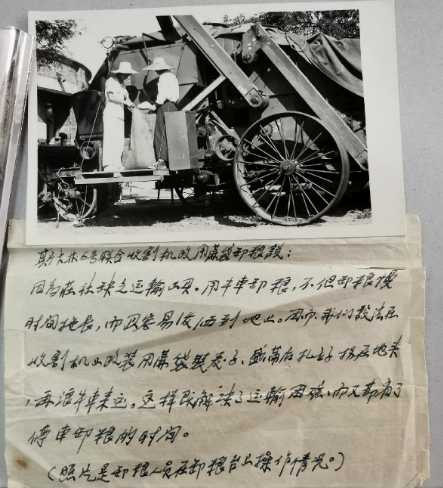 斯大林6号联合收割机改用麻袋卸粮设:
因为农社缺乏运输工具。用牛车卸粮,不但卸粮搅
时间拖长,而且容易浪洒到地上。因而我们设法在
收割机上改装用麻袋装麦子,盛满后扎好掷在地头
,再派牛车来运。这样既解决了运输困难,而又节省了
停车卸粮的时间。
(照片是卸粮人员在卸粮台上操作情况。)